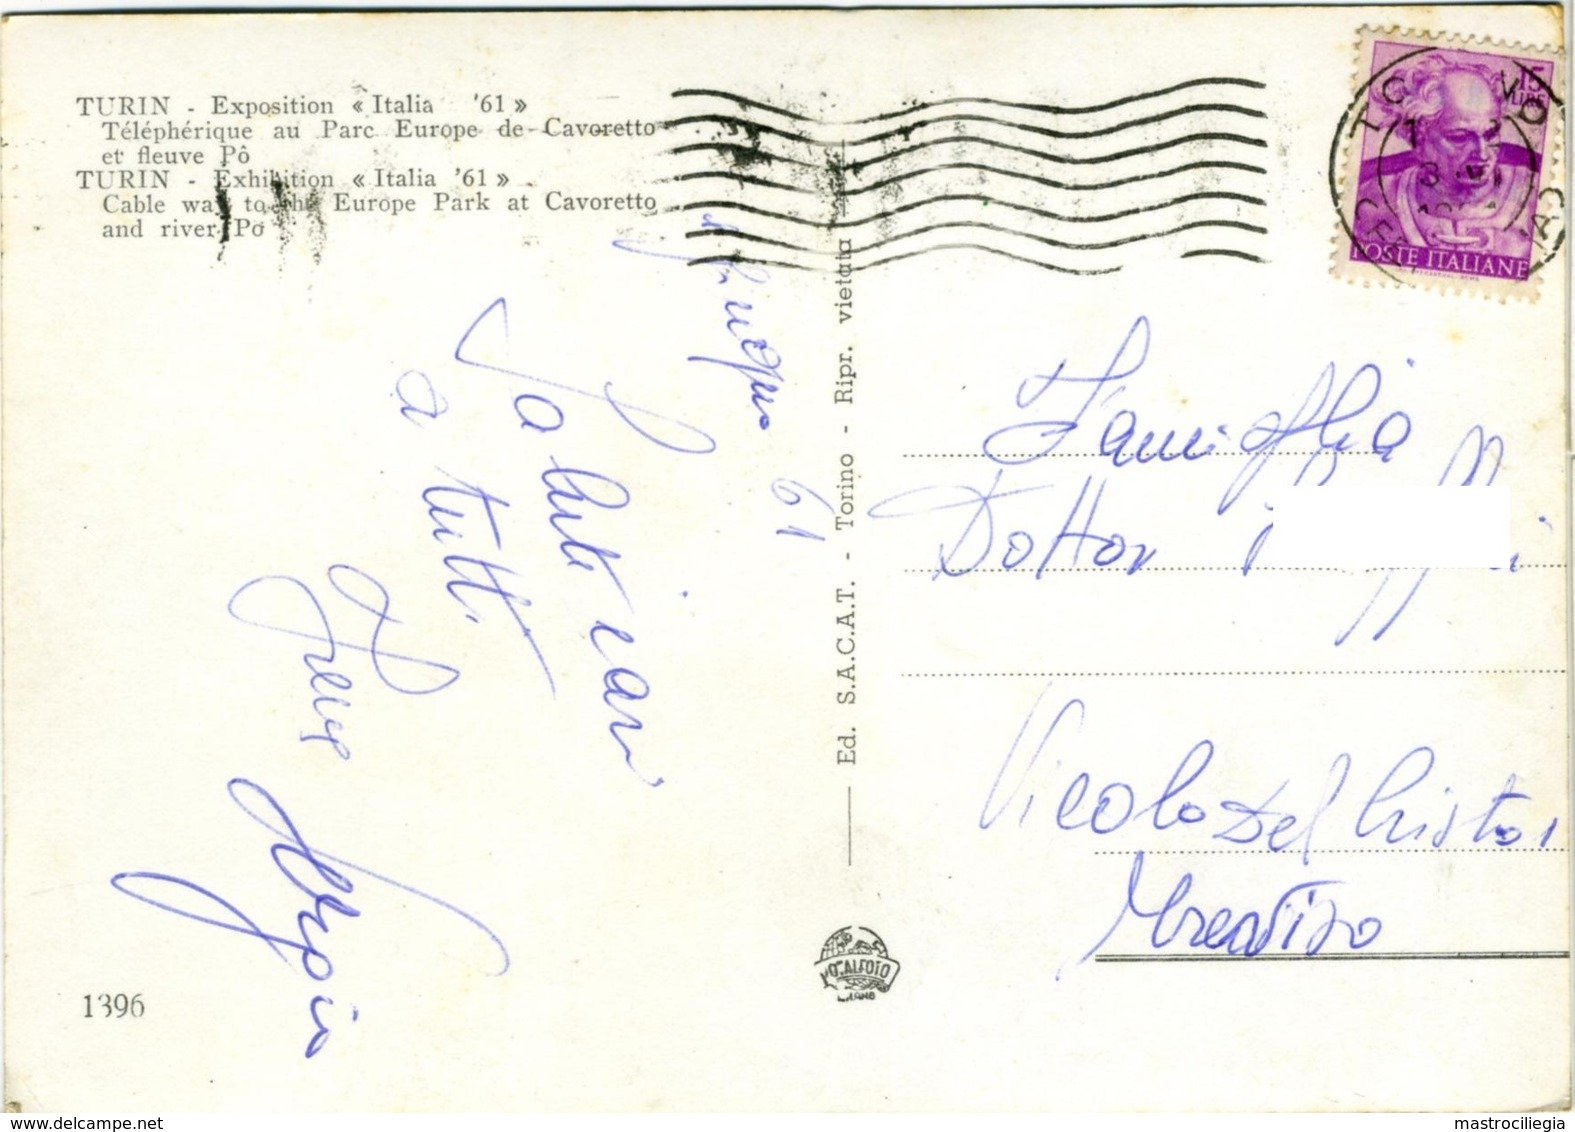 TURIN - Exposition « Italia '61 »
Téléphérique au Parc Europe de Cavoretto
et fleuve Pô
TURIN - Exhibition « Italia '61 »
Cable way to the Europe Park at Cavoretto
and river Po
giugno 61
Saluti cari
a tutti
1396
Ed. S.A.C.A.T. - Torino - Ripr. vietata
FOTALFOTO
MILANO
15
LIRE
POSTE ITALIANE
Famiglia
Dottor
Vicolo del Cristo 1
www.delcampe.net
mastrociliegia